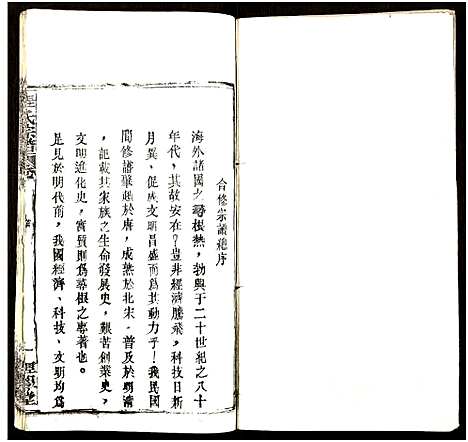 合修宗譜總序
海外諸國之尋根熱，勃興于二十世紀之八十
年代，其故安在？豈非經濟騰飛，科技日新
月異，促成文明昌盛而爲其動力乎！我民國
間修譜肇起於唐，成熟於北宋，普及於明清
，記載其家族之生命發展史，艱苦創業史，
文明進化史，實質則爲尋根之專著也。
足見於明代前，我國經濟、科技、文明均爲
氏宗譜
一